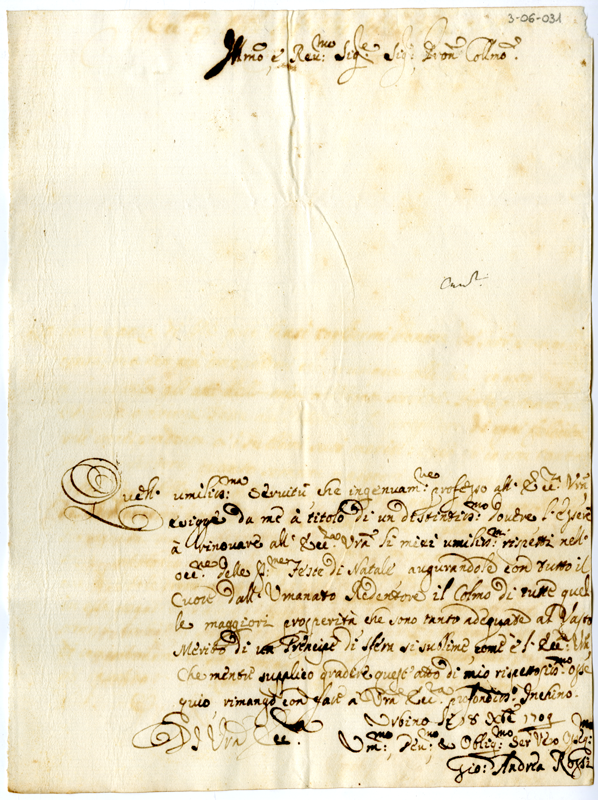 3-06-031
Illmo, e Reu:mo Sig.re Sig:r Pron Collmo.
Quell' umiliss:ma Seruitù che ingenuam:te professo all' Ecc.za Vra
esigge da me à titolo di un distintiss:mo douere l'essere
à rinouare all' Ecc:za Vra li miei umiliss:mi rispetti nell'
occ:ne delle P:nti Feste di Natale augurandole con tutto il
Cuore dall' Umanato Redentore il Colmo di tutte quel
le maggiori prosperità che sono tanto adeguate al Vasto
Merito di un Principe di sfera si sublime, come è l' Ecc:za Vra,
che mentre supplico gradire quest' atto di mio rispettosiss:mo osse
quio, rimango con fare a Vra Ecc:za profondiss:o Inchino.
Urbino li 18 Xbre 1705
Di Vra Ecc:za
Um:mo, Deu:mo, & Obblig:mo Ser:
Gio: Andrea